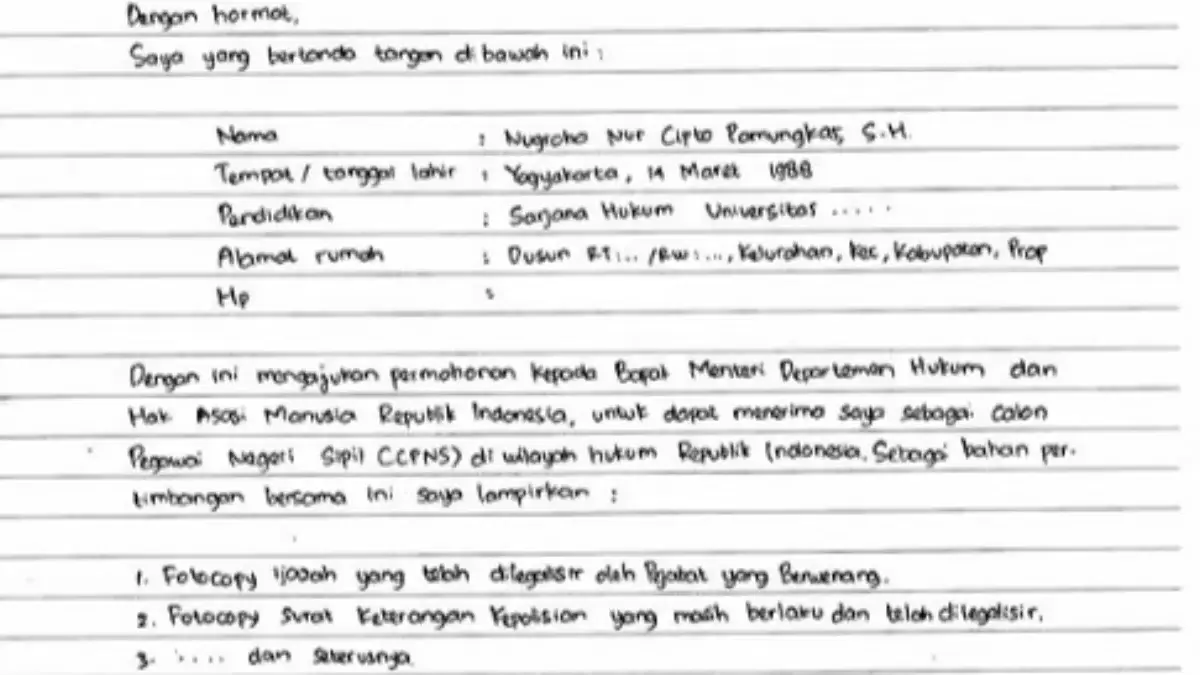 Dengan hormat,
Saya yang bertanda tangan di bawah ini :
Nama : Nugroho Nur Cipto Pamungkas, S.H.
Tempat / tanggal lahir : Yogyakarta, 14 Maret 1988
Pendidikan : Sarjana Hukum Universitas .....
Alamat rumah : Dusun RT:.. /RW:..., Kelurahan, Kec, Kabupaten, Prop
Hp :
Dengan ini mengajukan permohonan kepada Bapak Menteri Departemen Hukum dan
Hak Asasi Manusia Republik Indonesia, untuk dapat menerima saya sebagai Calon
Pegawai Negeri Sipil (CPNS) di wilayah hukum Republik Indonesia. Sebagai bahan per-
timbangan bersama ini saya lampirkan :
1. Fotocopy ijasah yang telah dilegalisir oleh Pejabat yang Berwenang.
2. Fotocopy Surat Keterangan Kepolisian yang masih berlaku dan telah dilegalisir.
3. ..... dan seterusnya